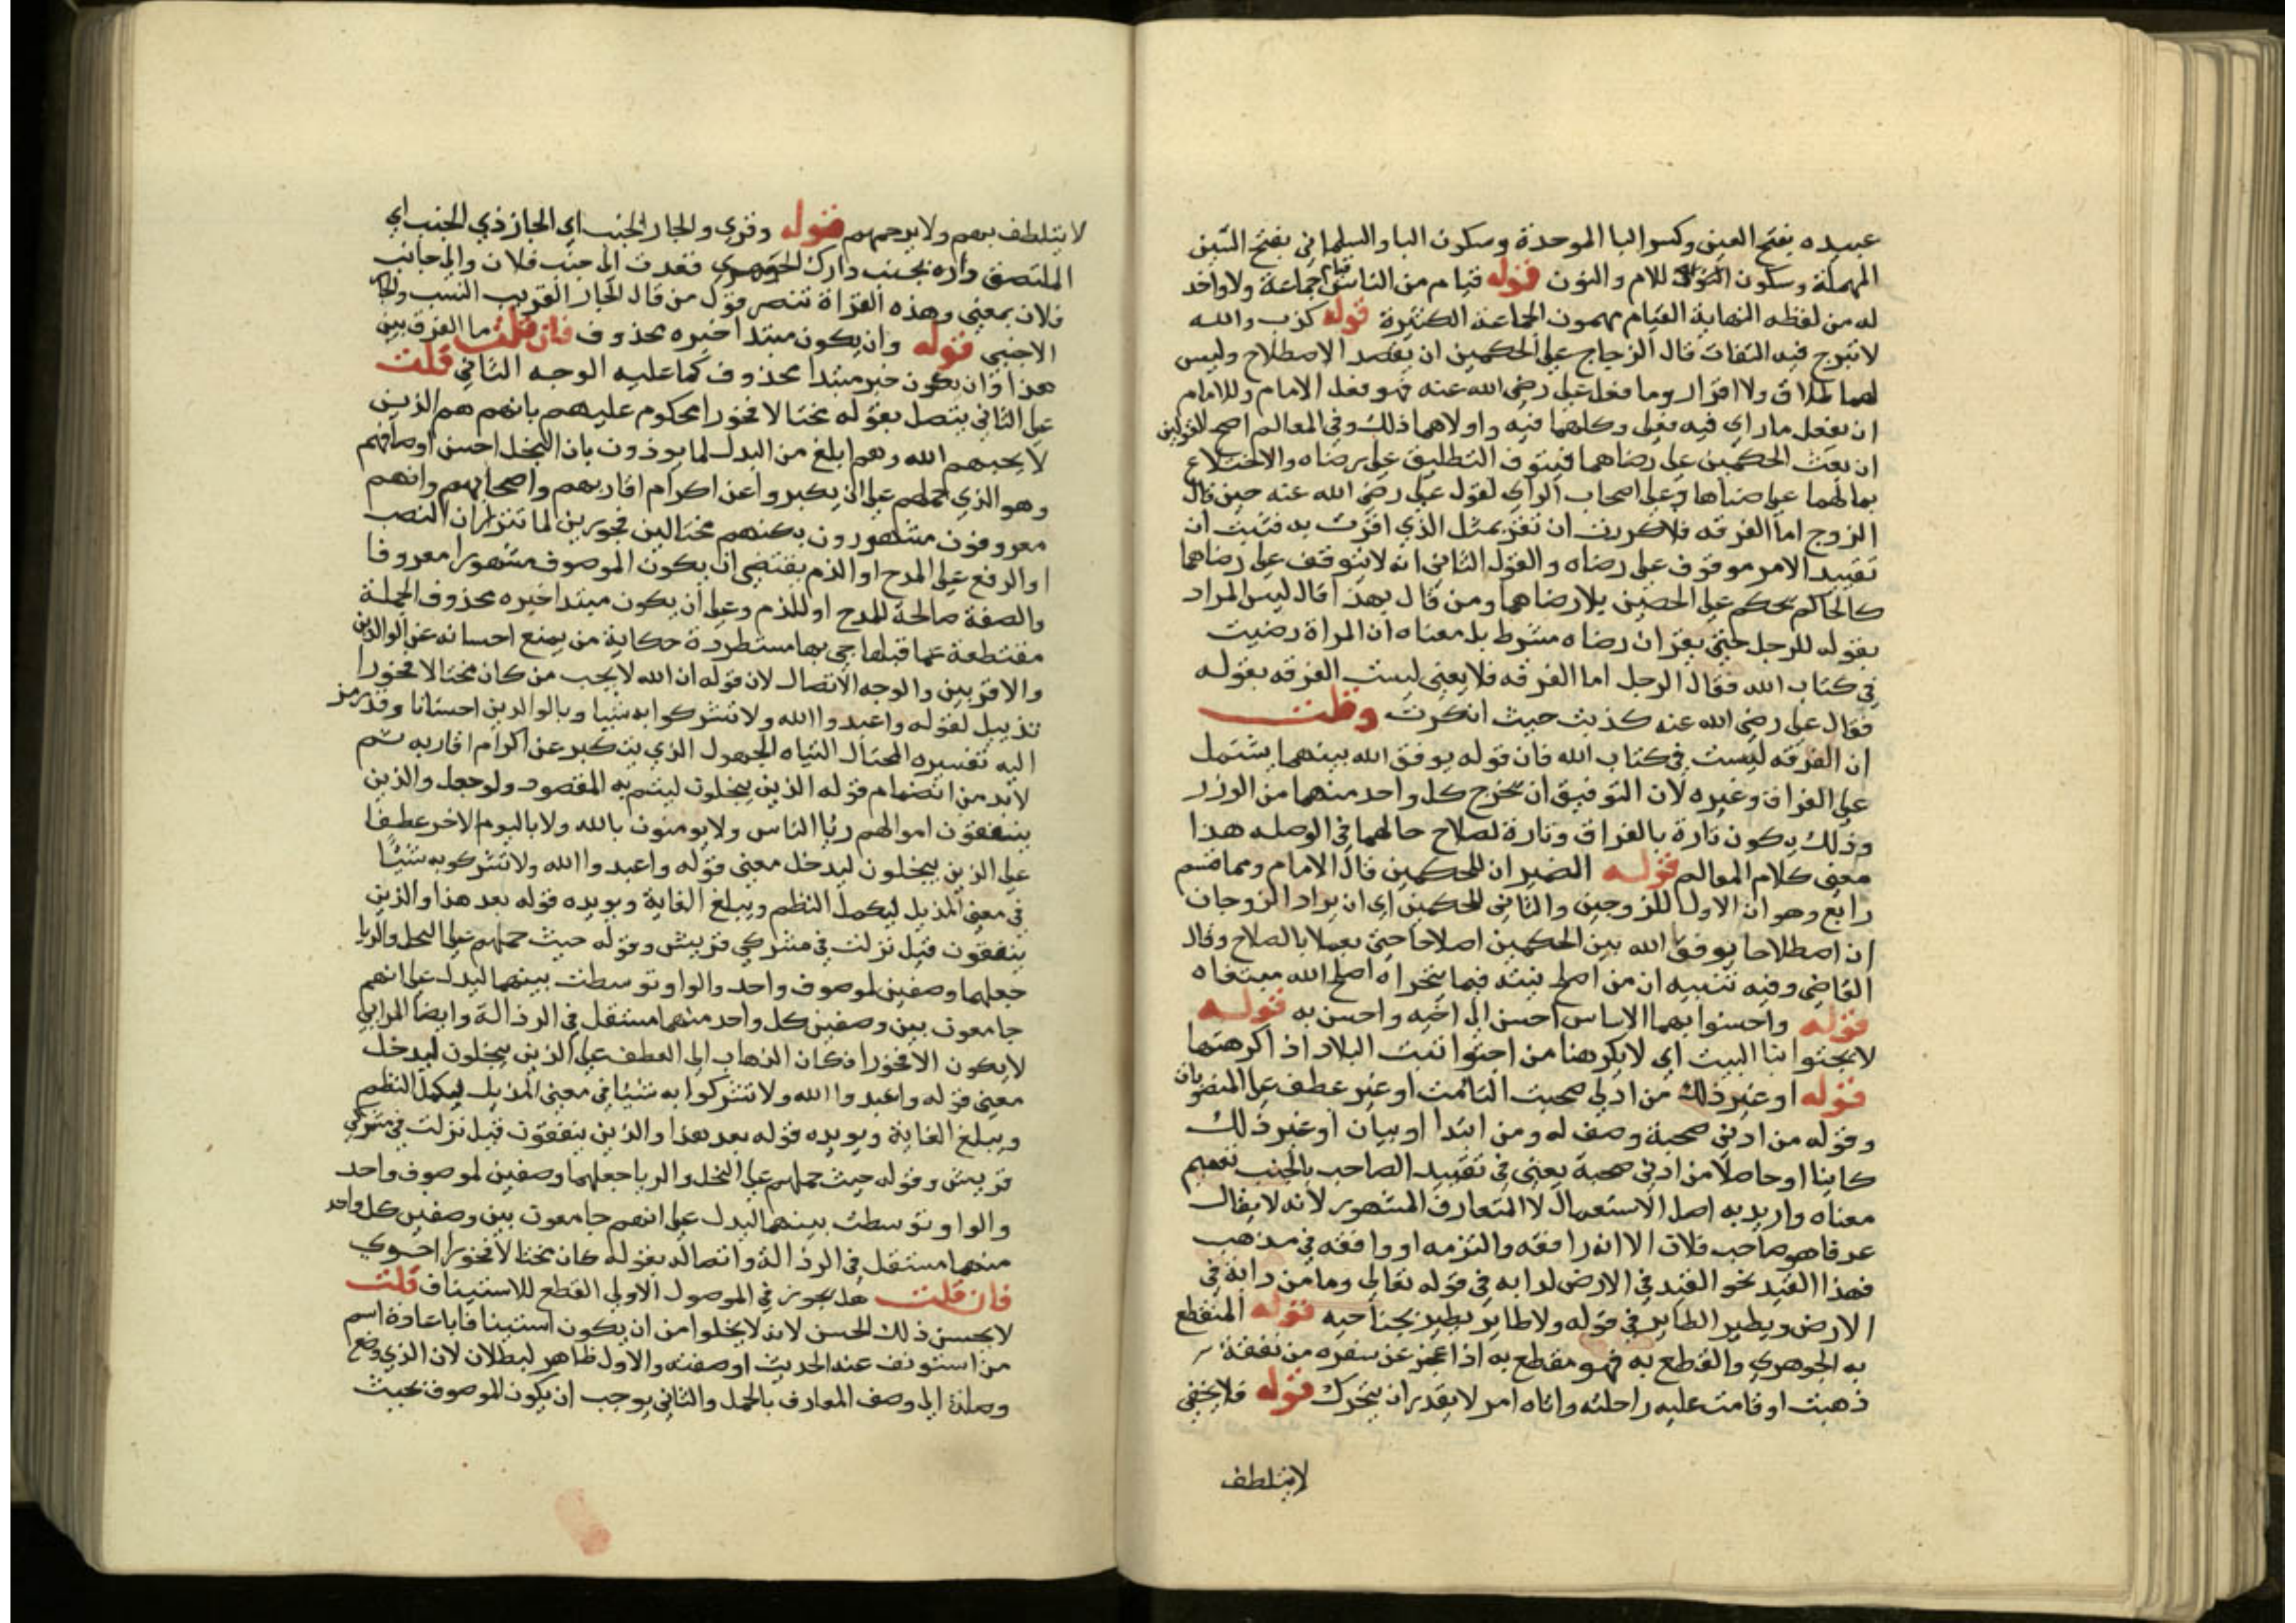 عبيده بفتح العين وكسر البا الموحدة وسكون اليا والسلماني بفتح السين
المهملة وسكون اللام والنون قوله قيام من الناس قيام جماعة ولا واحد
له من لفظه النهاية القيام مهمون الجماعة الكثيرة قوله كذبت والله
لا تبرح فيه التفات قال الزجاج علي الحكمين ان يقصد الاصطلاح وليس
لهما طلاق ولا اقرار وما فعل علي رضي الله عنه فهو فعل الامام وللامام
ان يفعل ما راي فيه فعلي وكلهما فيه واولاهما ذلك وفي المعالم اصح القولين
ان بعث الحكمين علي رضاهما فيتوقف التطليق علي رضاه والاختلاع
بمالهما علي رضاها وعلي اصحاب الراي لقول علي رضي الله عنه حين قال
الزوج اما الفرقه فلا كذبت ان تقر بمثل الذي اقرت به فثبت ان
تقييد الامر موقوف علي رضاه والقول الثاني انه لا يتوقف علي رضاهما
كالحاكم يحكم علي الخصمين بلا رضاهما ومن قال بهذا قال ليس المراد
بقوله للرجل حتي يقر ان رضاه مشروط بل معناه ان المراة رضيت
في كتاب الله فقال الرجل اما الفرقه فلا يعني ليست الفرقه بقوله
فقال علي رضي الله عنه كذبت حيث انكرت وقلت
ان الفرقه ليست في كتاب الله فان قوله يوفق الله بينهما يشتمل
علي الفراق وغيره لان التوفيق ان يخرج كل واحد منهما من الوزر
وذلك يكون تارة بالفراق وتارة لصلاح حالهما في الوصله هذا
معني كلام المعالم قوله الضميران للحكمين قال الامام ومما قسم
رابع وهو ان الاول للزوجين والثاني للحكمين اي ان يراد الزوجان
ان اصطلاحا يوفق الله بين الحكمين اصلاحا حتي يعملا بالصلاح وقال
القاضي وفيه تنبيه ان من اصلح نيته فيما يتحراه اصلح الله مبتغاه
قوله واحسنوا بهما الاساس احسن الي اخيه واحسن به قوله
لا يجتوانا البيت اي لا يكرهنا من اجتوا نفت البلاد اذ اكرهتها
قوله او غير ذلك من ادني صحبت التامت او غير عطف علي المنصوبات
وقوله من ادني صحبة وصف له ومن ابتدا او بيان او غير ذلك
كاينا او حاصلا من ادني صحبة يعني في تقييد الصاحب بالجنب تعميم
معناه واريد به اصل الاستعمال لا المتعارف المشهور لانه لا يقال
عرفا هو صاحب فلان الا انه رافقه والتزمه او وافقه في مذهب
فهذا القيد نحو القيد في الارض لدابه في قوله تعالي وما من دابة في
الارض ويطير الطاير في قوله ولا طاير يطير بجناحيه قوله المنقطع
به الجوهري والقطع به فهو مقطع به اذا عجز عن سفره من نفقة
ذهبت او قامت عليه راحلته واتاه امر لا يقدر ان يتحرك قوله فلا يخفي
لا يتلطف
لا يتلطف بهم ولا يرحمهم قوله وقري والجار الجنب اي الجار ذي الجنب اي
الملتصق داره بجنب دارك الجوهري فقدت الي جنب فلان والي جانب
فلان بمعني وهذه القراة تنصر قول من قال الجار القريب النسب والجار
الاجنبي قوله وان يكون مبتدا خبره محذوف فان قلت ما الفرق بين
هذا وان يكون خبر مبتدا محذوف كما عليه الوجه الثاني قلت
علي الثاني يتصل بقوله مختالا فخورا محكوم عليهم بانهم هم الذين
لا يحبهم الله وهم ابلغ من البدل لما يوذون بان البخل احسن اوصافهم
وهو الذي حملهم علي ان يكبروا عن اكرام اقاربهم واصحابهم وانهم
معروفون مشهورون بكنهم مختالين فخورين لما تنزل ان النصب
او الرفع علي المدح او الذم يقتضي ان يكون الموصوف مشهورا معروفا
والصفة صالحة للمدح او للذم وعلي ان يكون مبتدا خبره محذوف الجملة
مقتطعة عما قبلها جي بها مستطردة حكاية من يمنع احسانه عن الوالدين
والاقربين والوجه الاتصال لان قوله ان الله لا يحب من كان مختالا فخورا
تذييل لقوله واعبدوا الله ولا تشركوا به شيا وبالوالدين احسانا وقد رمز
اليه تفسيره المختال التياه الجهول الذي يتكبر عن اكرام اقاربه ثم
لابد من انضمام قوله الذين يبخلون ليتم به المقصود ولو جعل والذين
ينفقون اموالهم ريا الناس ولا يومنون بالله ولا باليوم الاخر عطفا
علي الذين يبخلون ليدخل معني قوله واعبدوا الله ولا تشركوا به شيئا
في معني المذيل ليكمل النظم ويبلغ الغاية ويويده قوله بعد هذا والذين
ينفقون قيل نزلت في مشركي قريش وقوله حيث حملهم علي البخل والريا
جعلهما وصفين لموصوف واحد والواو توسطت بينهما ليدل علي انهم
جامعون بين وصفين كل واحد منهما مستقل في الرذالة وايضا المرايي
لا يكون الا فخورا فكان الذهاب الي العطف علي الذين يبخلون ليدخل
معني قوله واعبدوا الله ولا تشركوا به شيئا في معني المذيل ليكمل النظم
ويبلغ الغاية ويويده قوله بعد هذا والذين ينفقون قيل نزلت في مشركي
قريش وقوله حيث حملهم علي البخل والريا جعلهما وصفين لموصوف واحد
والواو توسطت بينهما ليدل علي انهم جامعون بين وصفين كل واحد
منهما مستقل في الرذالة واتصاله بقوله كان مختالا فخورا احري
فان قلت هل يجوز في الموصول الاولي القطع للاستيناف قلت
لا يحسن ذلك الحسن لانه لا يخلوا من ان يكون استينافا باعادة اسم
من استونف عند الحديث او صفته والاول ظاهر لبطلان لان الذي وضع
وصلة الي وصف المعارف بالجمل والثاني يوجب ان يكون الموصوف بحيث